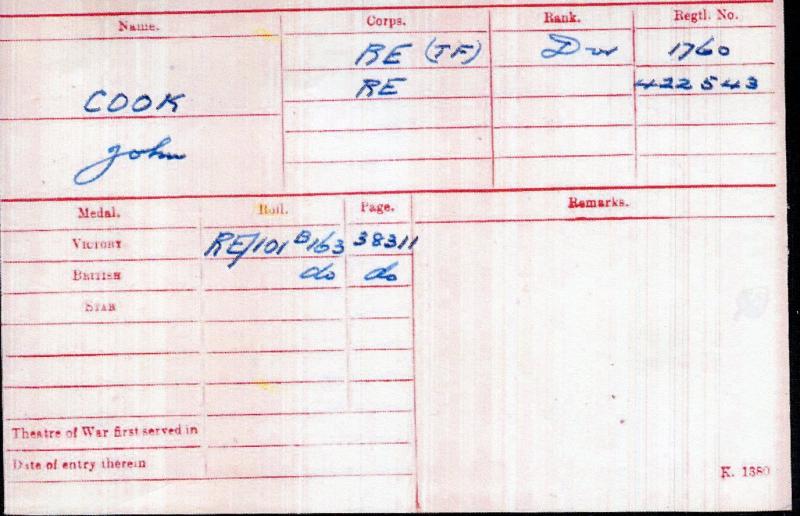 Name. Corps. Rank. Regtl. No.
RE (TF) Dvr 1760
COOK RE 422543
John
Medal. Roll. Page. Remarks.
VICTORY RE/101 B163 38311
BRITISH do do
STAR
Theatre of War first served in
Date of entry therein
K. 1380